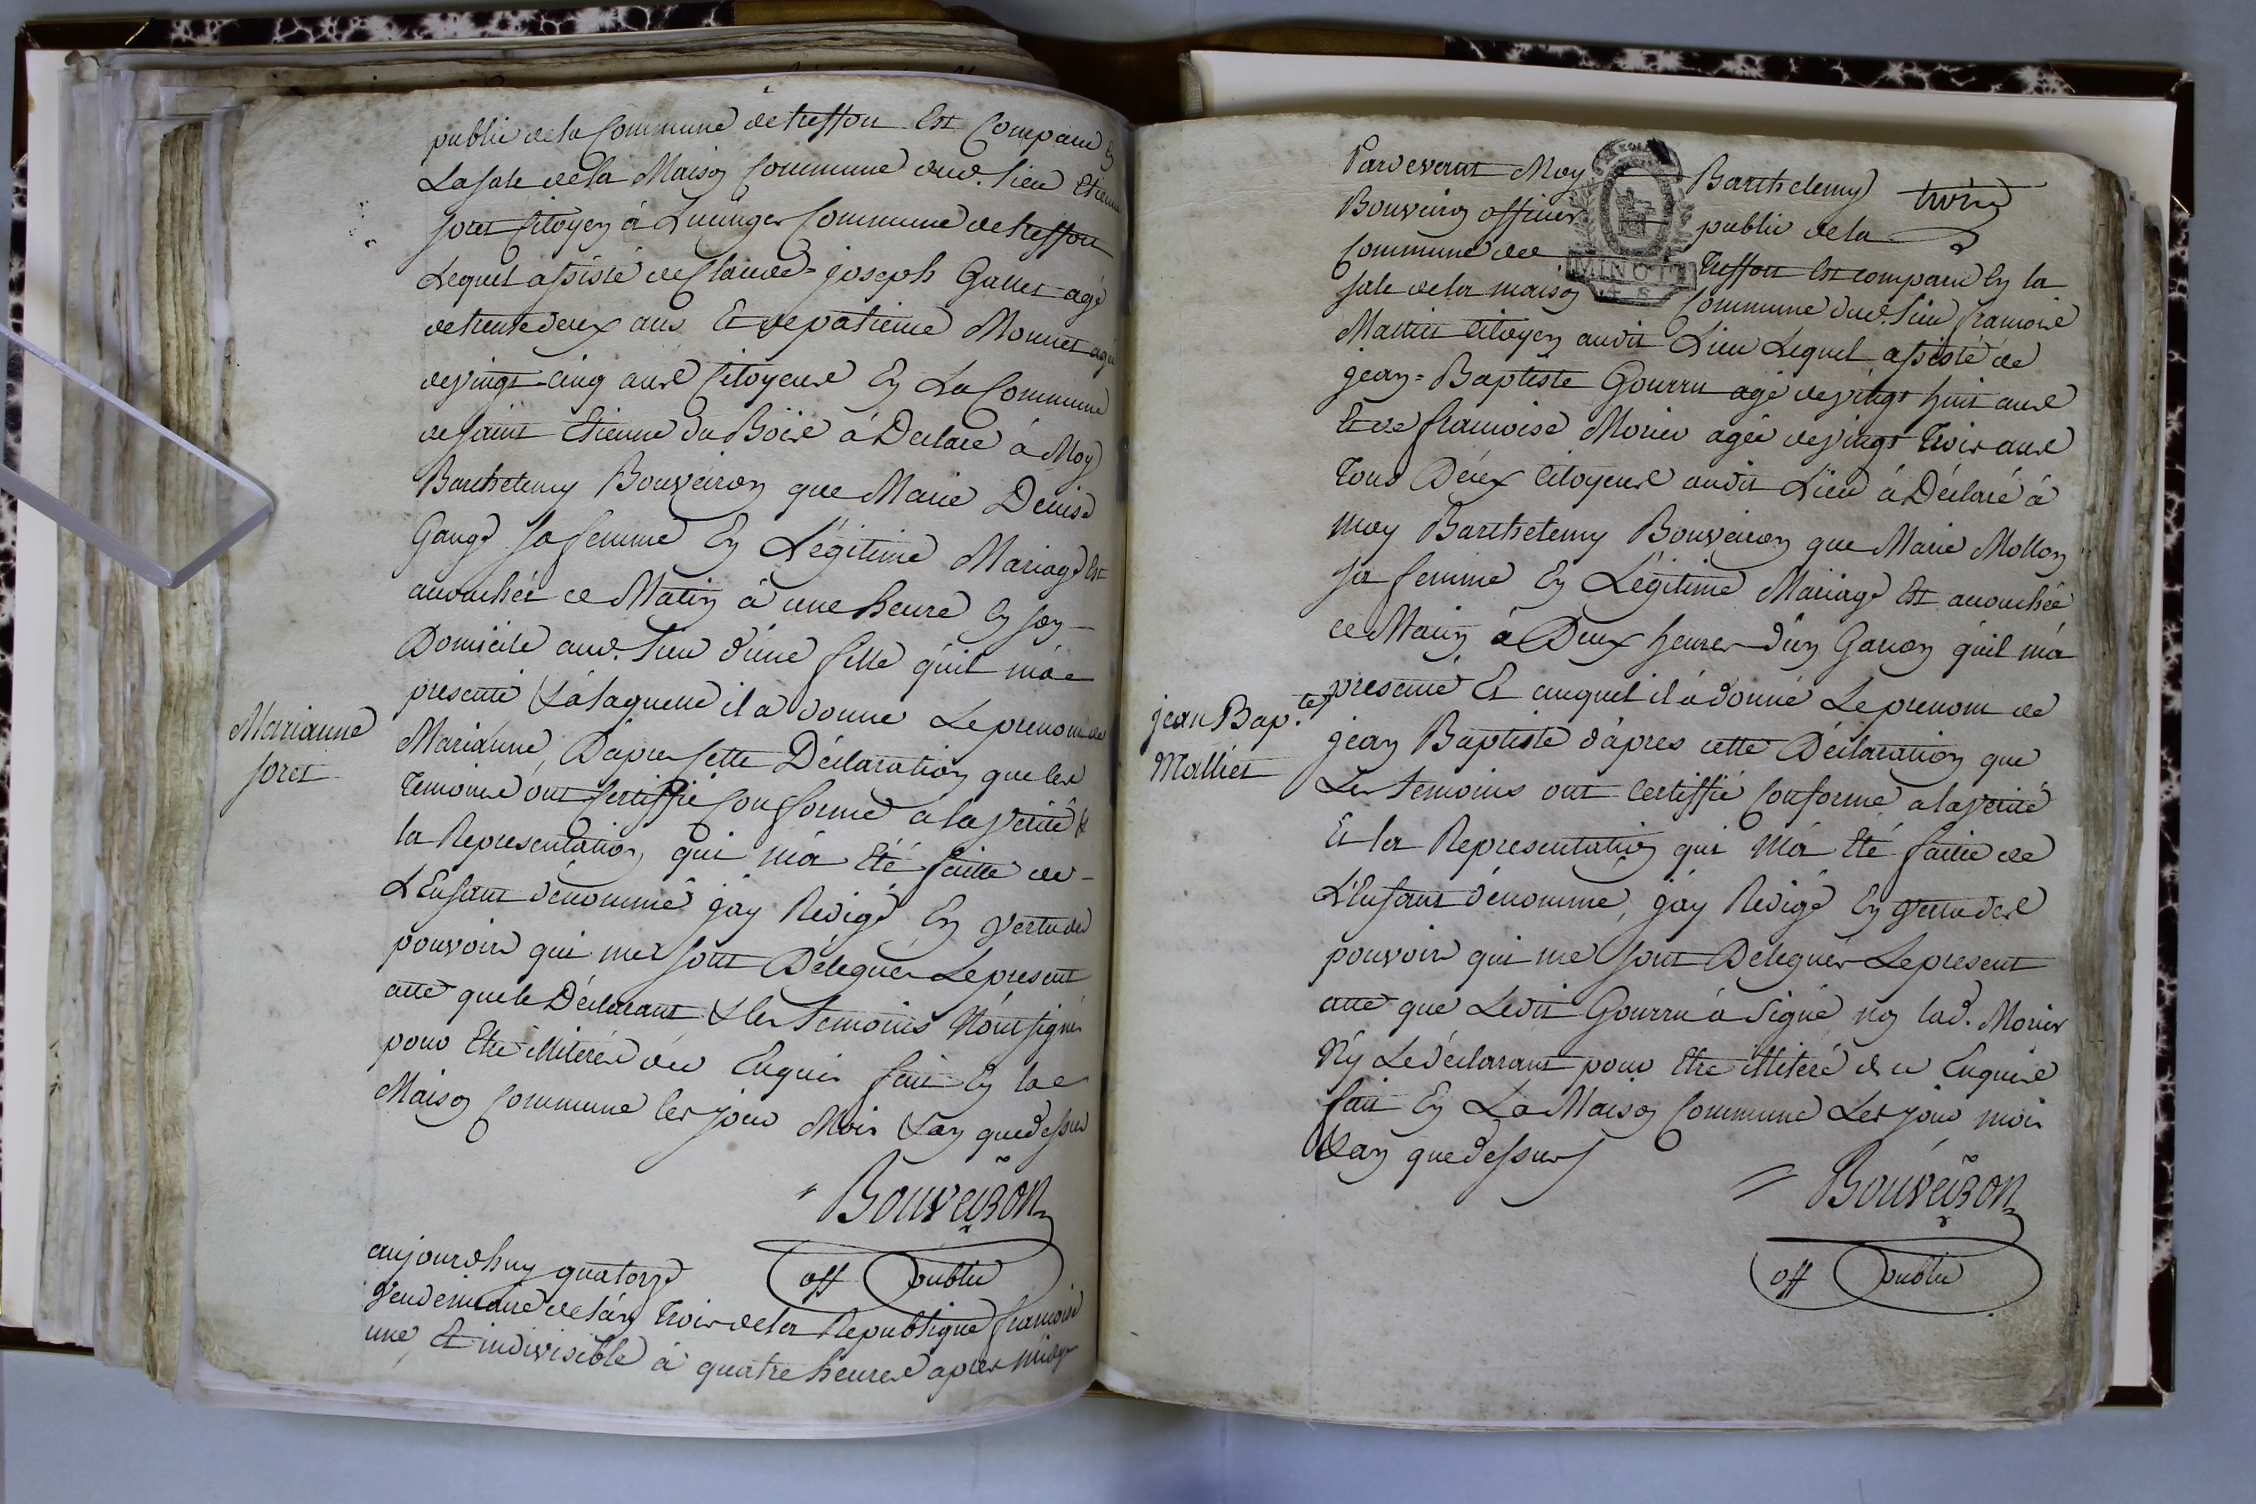 public de la Commune de treffort Est Comparu En
La sale de la Maison Commune dud. Lieu Etienne
foret Citoyen á Lucinges Commune de treffort
Lequel assisté de Claude=joseph Gallet agé
de trente deux ans Et de patience Monnet agée
de vingt-cinq ans Citoyens En La Commune
de saint Etienne du Bois á Declaré á Moy
Barthelemy Bouveiron que Marie Denise
Gange sa femme En Légitime Mariage Est
accouchée ce Matin á une heure En son
Domicile aud. Lieu d'une fille quil má
presenté & á laquelle il a donné Le prenom de
Marianne, D'apres sette Déclaration que les
temoins ont sertiffié Conforme a la verité &
la Representation qui má Eté faitte de
L'Enfant dénommé jáy Redigé En vertu des
pouvoirs qui me sont Délegués Le present
acte que le Déclarant & les temoins N'ont signé
pour Etre illiterés de ce Enquis fait En la
Maison Commune les jour Mois & an que dessus
Marianne
foret
Bouveiron
off public
aujourdhuy quatorze
vendemiaire de l'án trois de la Republique francoise
une Et indivisible á quatre heures apres midy
Pardevant Moy Barthelemy trois
Bouveiron officier public de la
Commune de Treffort Est comparu En la
sale de la maison Commune dud. Lieu francois
Mallier Citoyen audit Lieu Lequel assisté de
jean=Baptiste Gourru agé de vingt huit ans
Et de francoise Morier agée de vingt trois ans
tous Deux Citoyens audit Lieu á Déclaré á
moy Barthelemy Bouveiron que Marie Mollon
sa femme En Légitime Mariage Est accouchée
ce Matin á Deux heures d'un Garcon quil má
presenté Et auquel il á donné Le prenom de
jean Baptiste d'ápres cette Déclaration que
Les temoins ont Certiffié Conforme a la verité
Et la Representation qui Má Eté faitte de
L'Enfant dénommé, jáy Redigé En vertu des
pouvoirs qui me sont Delegués Le present
acte que Ledit Gourru á Signé non lad. Morier
Ny Le déclarant pour Etre illiteré de ce Enquis
fait En La Maison Commune Les jour mois
& an que dessus
jean Bap.te
Mallier
Bouveiron
off public
MINUTE